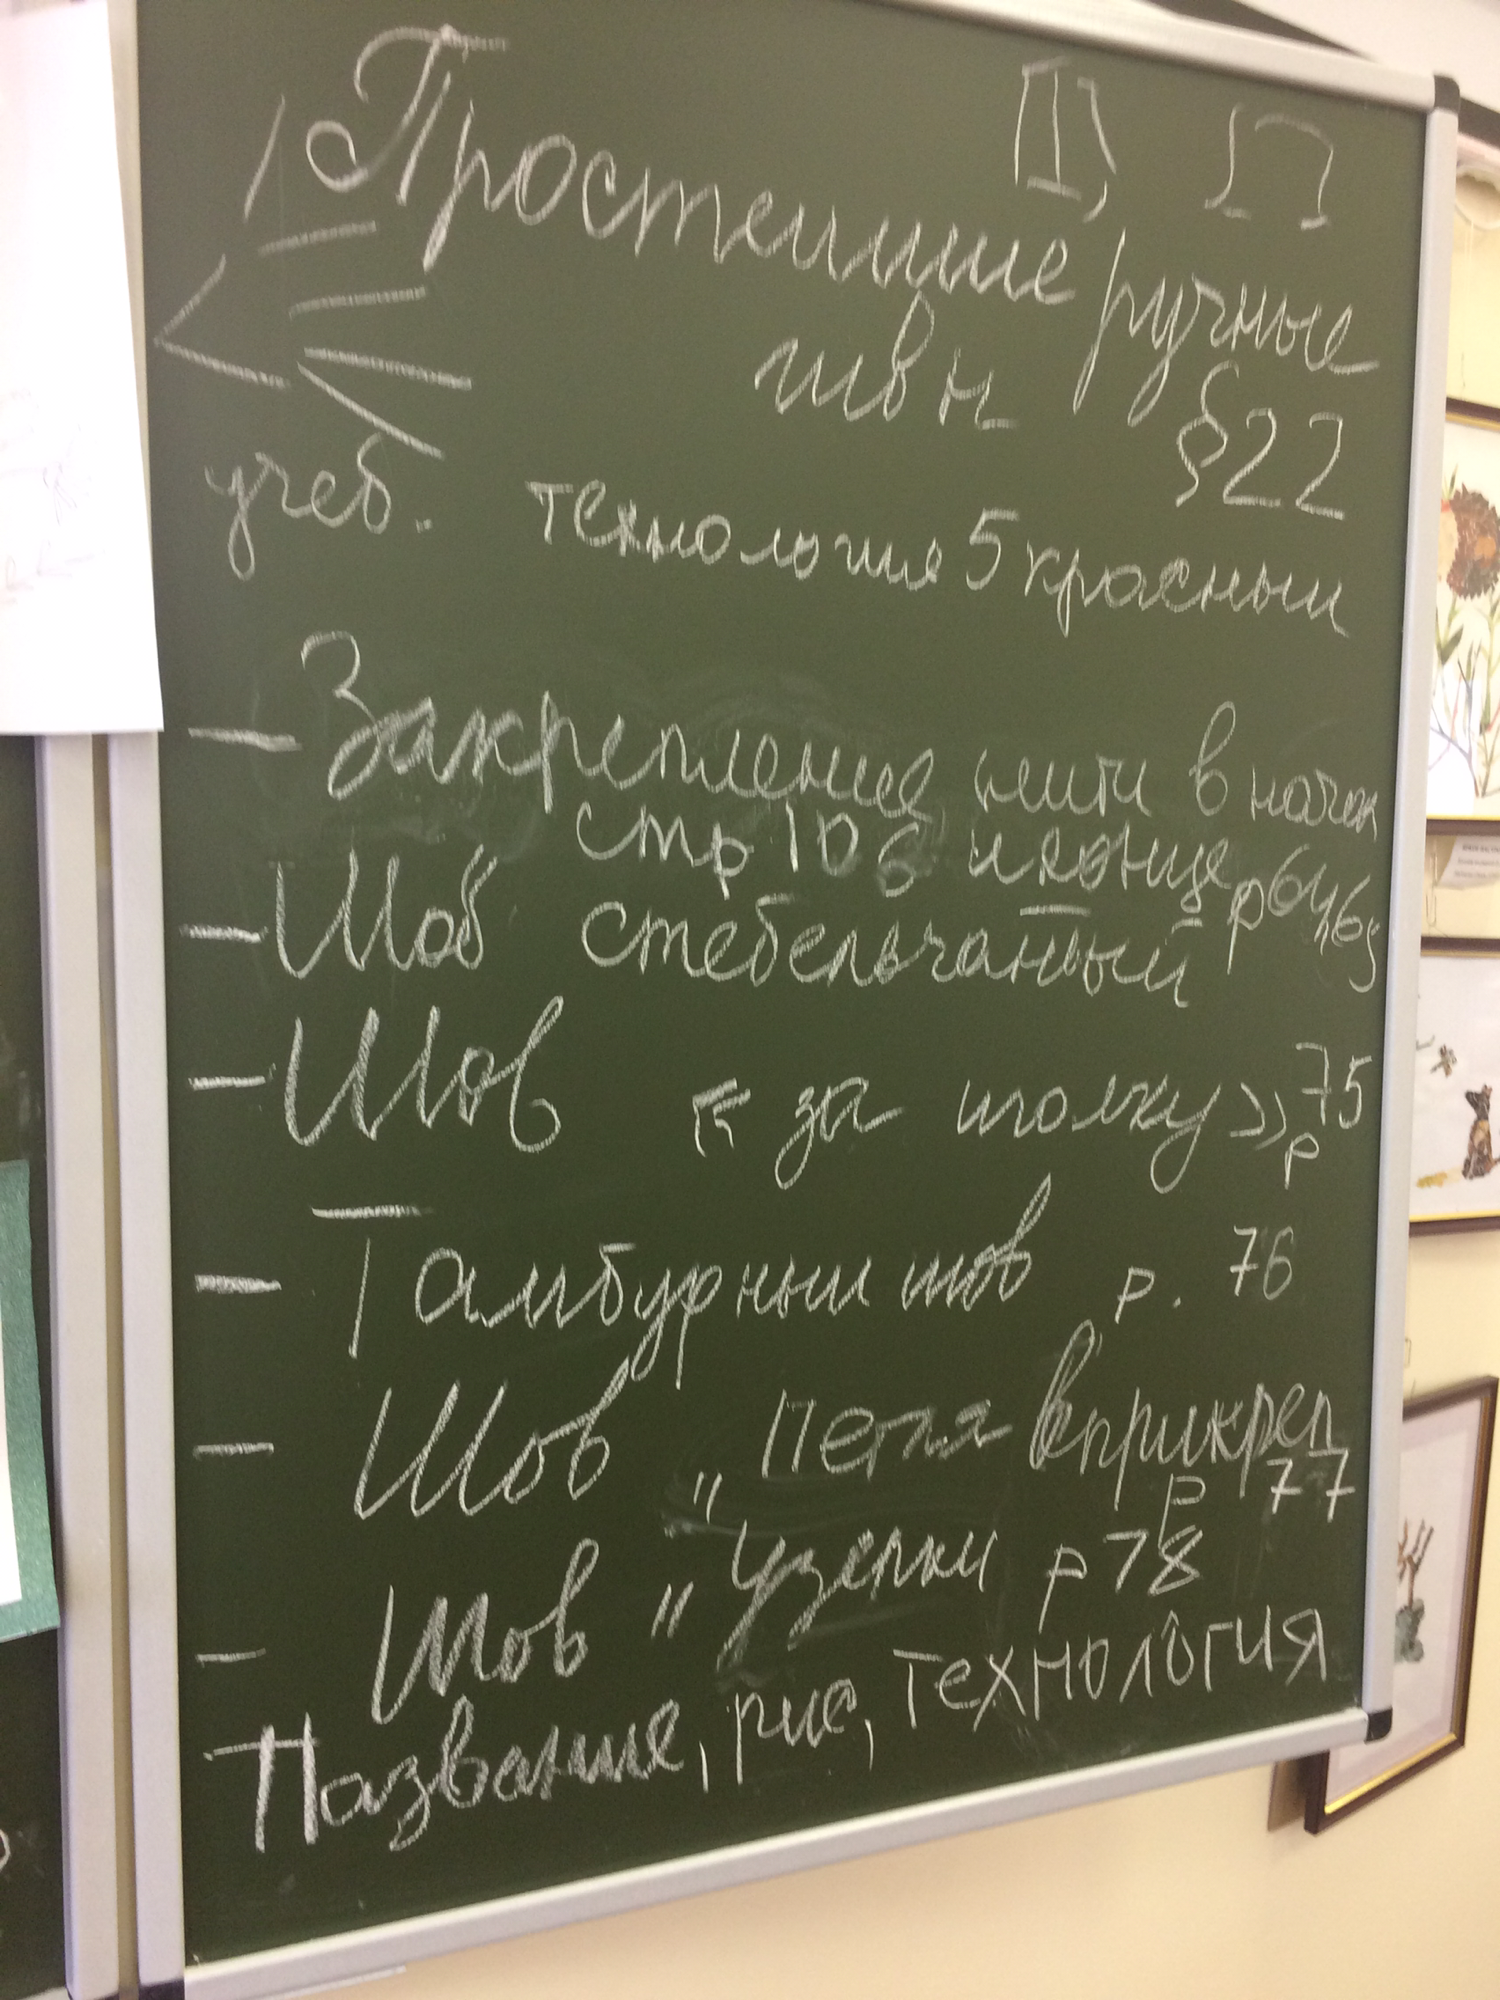 Простейшие ручные
швы
§22
учеб. технология 5 красный
— Закрепление нити в начал
стр 106 и конце р 64, 65
— Шов стебельчатый
— Шов « за иголку » р 75
— Тамбурный шов р. 76
— Шов " петля вприкреп
р 77
— Шов " Узелки р 78
Название, рис, технология